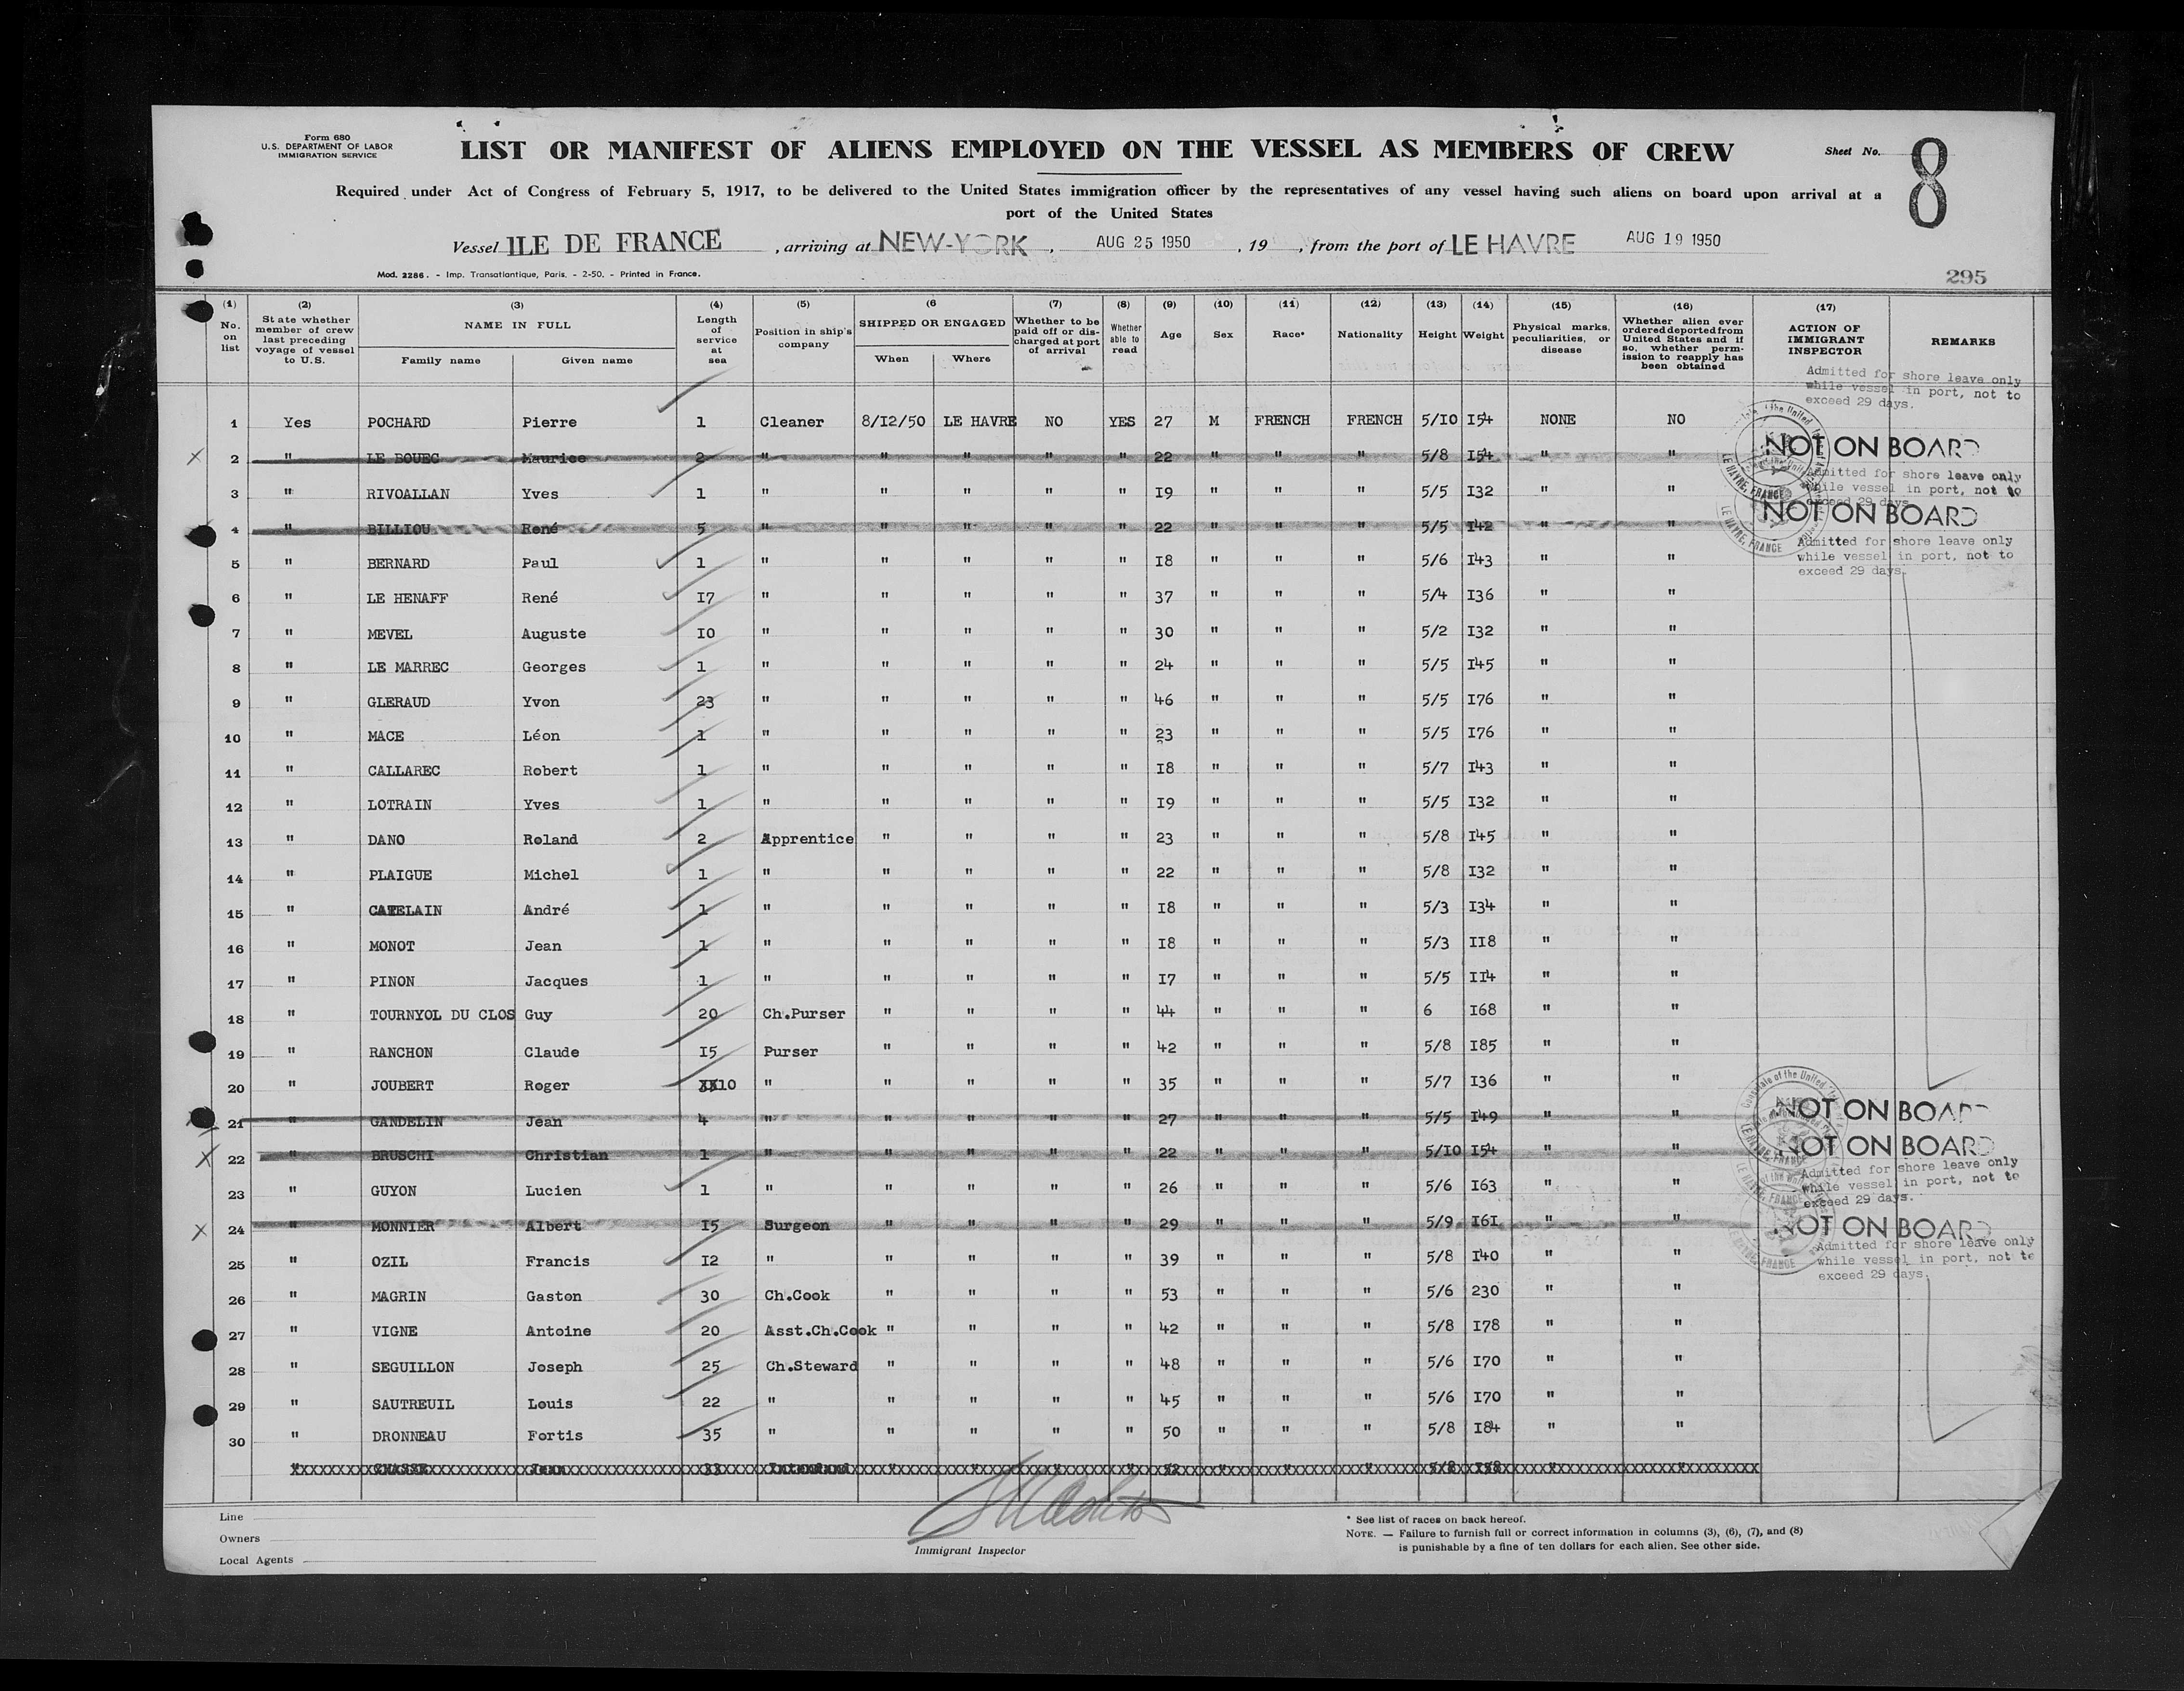 Form 680
U.S. DEPARTMENT OF LABOR
IMMIGRATION SERVICE
LIST OR MANIFEST OF ALIENS EMPLOYED ON THE VESSEL AS MEMBERS OF CREW
Sheet No. 8
Required under Act of Congress of February 5, 1917, to be delivered to the United States immigration officer by the representatives of any vessel having such aliens on board upon arrival at a
port of the United States
Vessel ILE DE FRANCE, arriving at NEW-YORK, AUG 25 1950, 19, from the port of LE HAVRE AUG 19 1950
Mod. 2286. - Imp. Transatlantique, Paris. - 2-50. - Printed in France.
295
(1) No. on list
(2) State whether member of crew last preceding voyage of vessel to U.S.
(3) NAME IN FULL Family name Given name
(4) Length of service at sea
(5) Position in ship's company
(6 SHIPPED OR ENGAGED When Where
(7) Whether to be paid off or discharged at port of arrival
(8) Whether able to read
(9) Age
(10) Sex
(11) Race*
(12) Nationality
(13) Height
(14) Weight
(15) Physical marks, peculiarities, or disease
(16) Whether alien ever ordered deported from United States and if so, whether permission to reapply has been obtained
(17) ACTION OF IMMIGRANT INSPECTOR
REMARKS
Admitted for shore leave only
while vessel in port, not to
exceed 29 days.
1 Yes POCHARD Pierre 1 Cleaner 8/12/50 LE HAVRE NO YES 27 M FRENCH FRENCH 5/10 154 NONE NO
2 " LE BOUEC Maurice 2 " " " " " 22 " " " 5/8 154 " " NOT ON BOARD
Admitted for shore leave only
while vessel in port, not to
exceed 29 days
3 " RIVOALLAN Yves 1 " " " " " 19 " " " 5/5 132 " "
4 " BILLIOU René 5 " " " " " 22 " " " 5/5 142 " " NOT ON BOARD
Admitted for shore leave only
while vessel in port, not to
exceed 29 days.
5 " BERNARD Paul 1 " " " " " 18 " " " 5/6 143 " "
6 " LE HENAFF René 17 " " " " " 37 " " " 5/4 136 " "
7 " MEVEL Auguste 10 " " " " " 30 " " " 5/2 132 " "
8 " LE MARREC Georges 1 " " " " " 24 " " " 5/5 145 " "
9 " GLERAUD Yvon 23 " " " " " 46 " " " 5/5 176 " "
10 " MACE Léon 1 " " " " " 23 " " " 5/5 176 " "
11 " CALLAREC Robert 1 " " " " " 18 " " " 5/7 143 " "
12 " LOTRAIN Yves 1 " " " " " 19 " " " 5/5 132 " "
13 " DANO Roland 2 Apprentice " " " " 23 " " " 5/8 145 " "
14 " PLAIGUE Michel 1 " " " " " 22 " " " 5/8 132 " "
15 " CATELAIN André 1 " " " " " 18 " " " 5/3 134 " "
16 " MONOT Jean 1 " " " " " 18 " " " 5/3 118 " "
17 " PINON Jacques 1 " " " " " 17 " " " 5/5 114 " "
18 " TOURNYOL DU CLOS Guy 20 Ch.Purser " " " " 44 " " " 6 168 " "
19 " RANCHON Claude 15 Purser " " " " 42 " " " 5/8 185 " "
20 " JOUBERT Roger 10 " " " " " 35 " " " 5/7 136 " "
21 " GANDELIN Jean 4 " " " " " 27 " " " 5/5 149 " " NOT ON BOARD
22 " BRUSCHI Christian 1 " " " " " 22 " " " 5/10 154 " " NOT ON BOARD
Admitted for shore leave only
while vessel in port, not to
exceed 29 days.
23 " GUYON Lucien 1 " " " " " 26 " " " 5/6 163 " "
24 " MONNIER Albert 15 Surgeon " " " " 29 " " " 5/9 161 " " NOT ON BOARD
Admitted for shore leave only
while vessel in port, not to
exceed 29 days.
25 " OZIL Francis 12 " " " " " 39 " " " 5/8 140 " "
26 " MAGRIN Gaston 30 Ch.Cook " " " " 53 " " " 5/6 230 " "
27 " VIGNE Antoine 20 Asst.Ch.Cook " " " " 42 " " " 5/8 178 " "
28 " SEGUILLON Joseph 25 Ch.Steward " " " " 48 " " " 5/6 170 " "
29 " SAUTREUIL Louis 22 " " " " " 45 " " " 5/6 170 " "
30 " DRONNEAU Fortis 35 " " " " " 50 " " " 5/8 184 " "
Line
Owners
Local Agents
Immigrant Inspector
* See list of races on back hereof.
NOTE. — Failure to furnish full or correct information in columns (3), (6), (7), and (8)
is punishable by a fine of ten dollars for each alien. See other side.